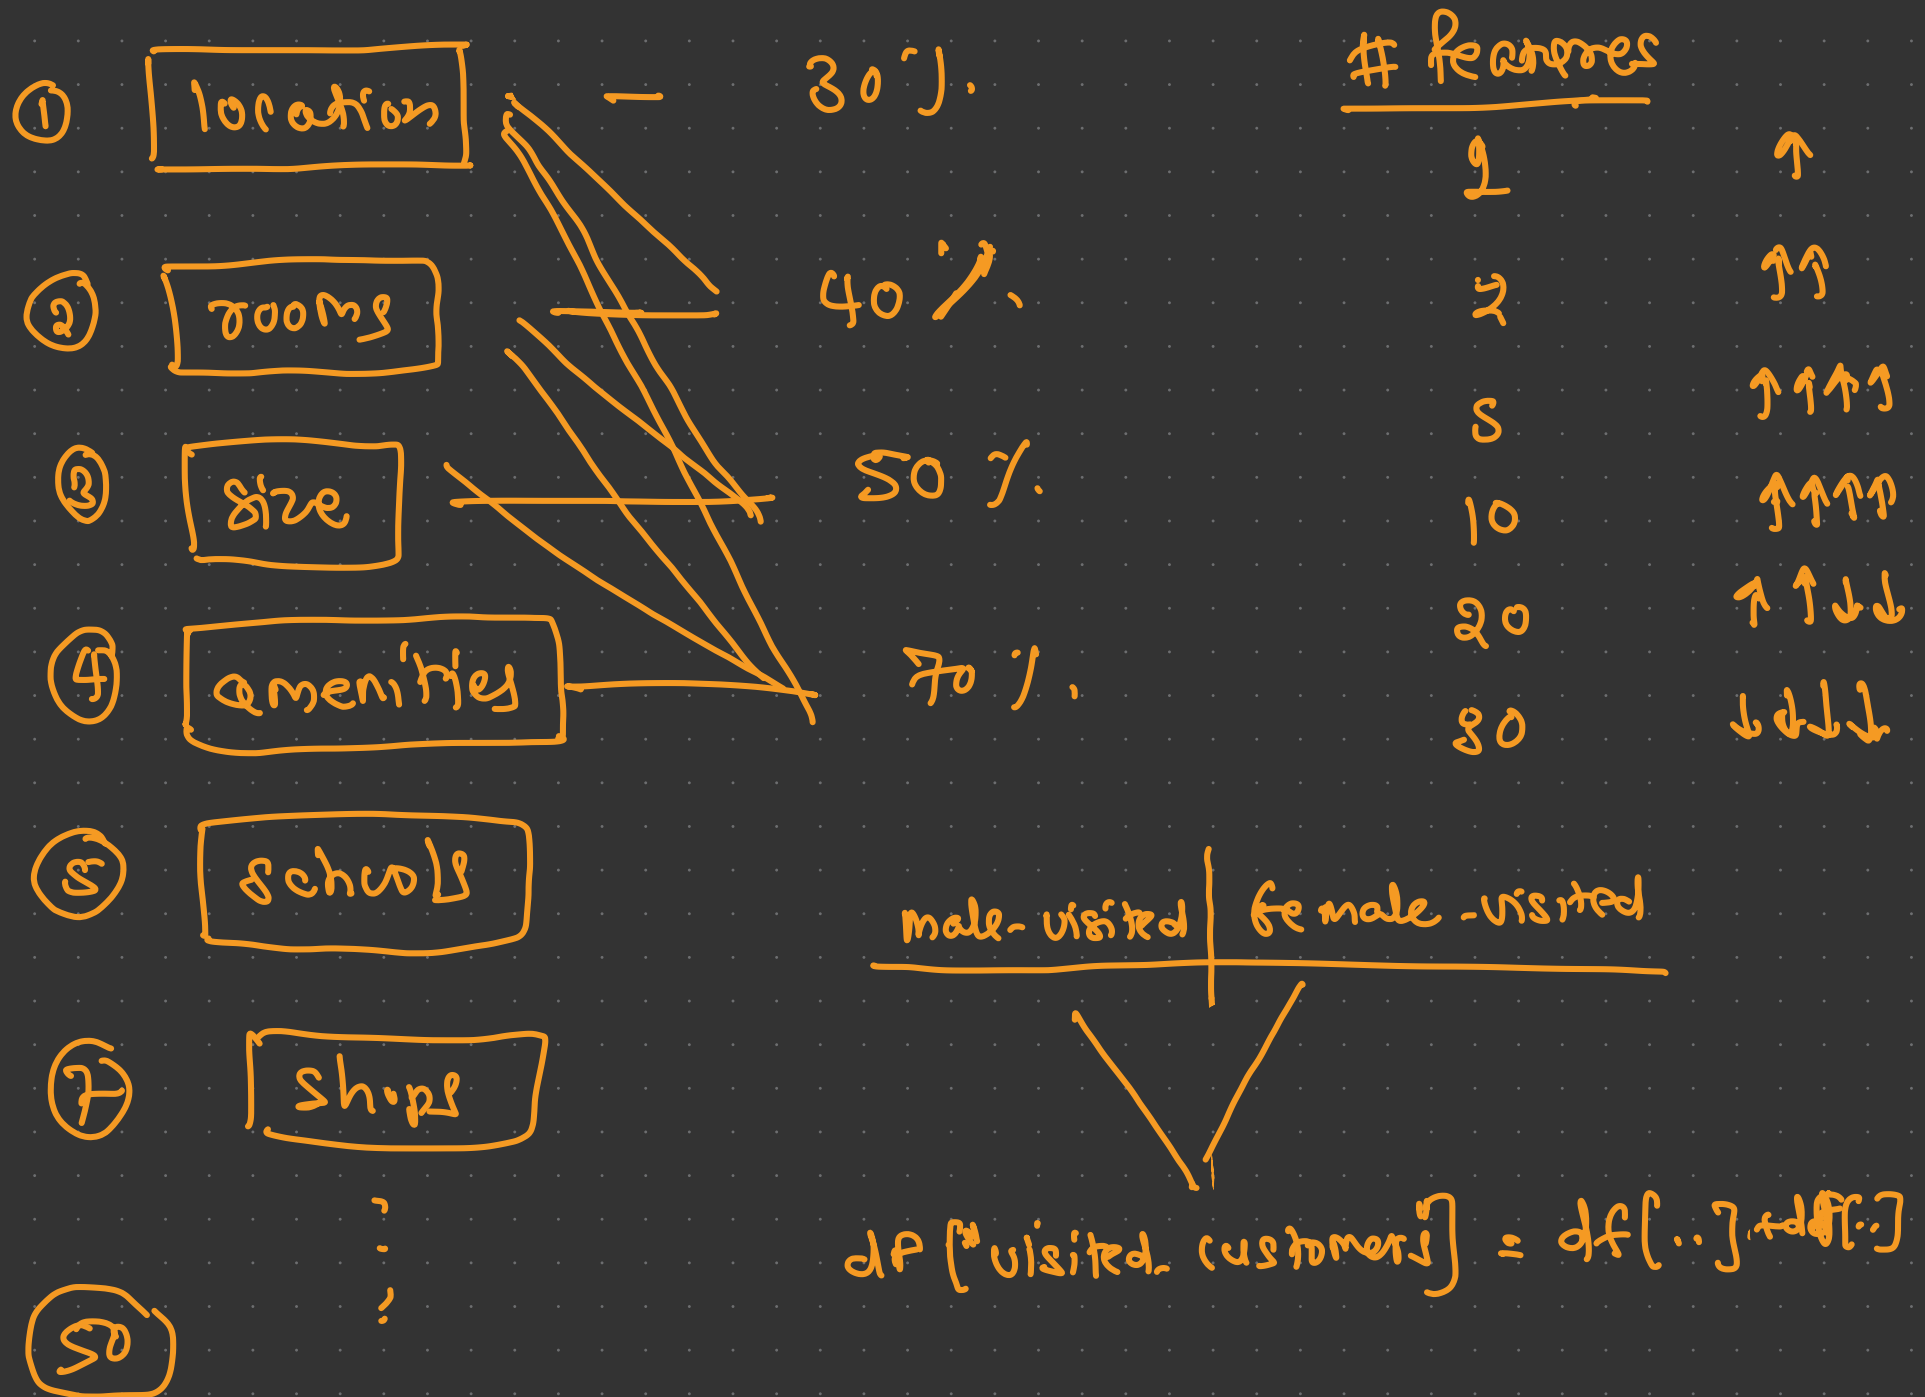 ① location — 30%
② rooms 40%
③ size 50%
④ amenities 70%
⑤ schools
⑦ shops
50
# features
1 ↑
2 ↑↑
5 ↑↑↑↑
10 ↑↑↑↑
20 ↑↑↓↓
30 ↓↓↓↓
male-visited | female-visited
df["visited_customers"] = df[..] + df[..]